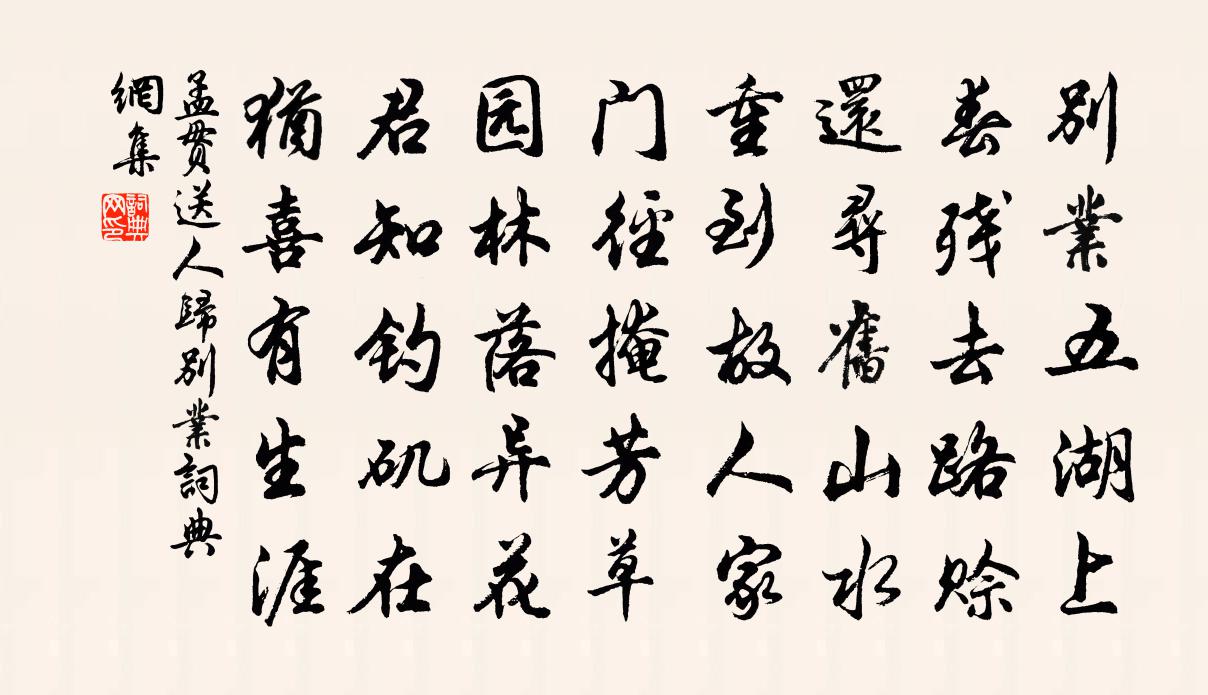 別業五湖上
春残去路賒
還尋舊山水
重到故人家
门徑掩芳草
园林落异花
君知钓矶在
猶喜有生涯
孟貫送人歸別業詞典
網集
詞典
网印